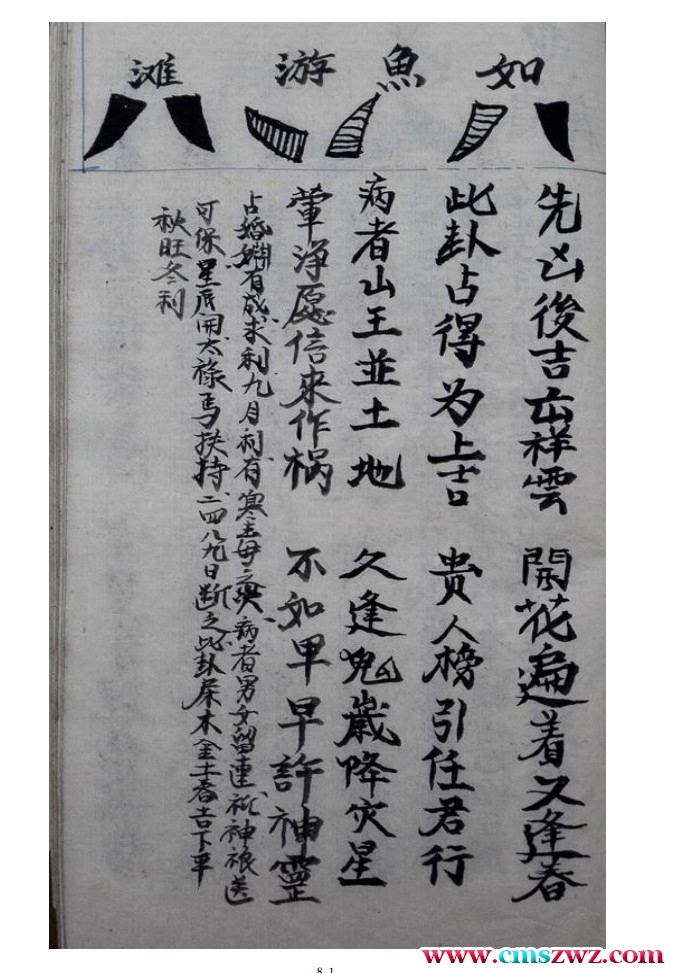 如魚游滩
先凶後吉云祥雲 開花遍着又逢春
此卦占得为上吉 贵人榜引任君行
病者山王並土地 久逢鬼嵗降灾星
葷净愿信來作祸 不如早早許神靈
占婚姻有成求利九月利有寒毒之病者男女留連祀神禳送
可保星辰開太祿馬扶持二四八九日断之此卦屎木金土春吉下平
秋旺冬利
8 1
www.cmszwz.com